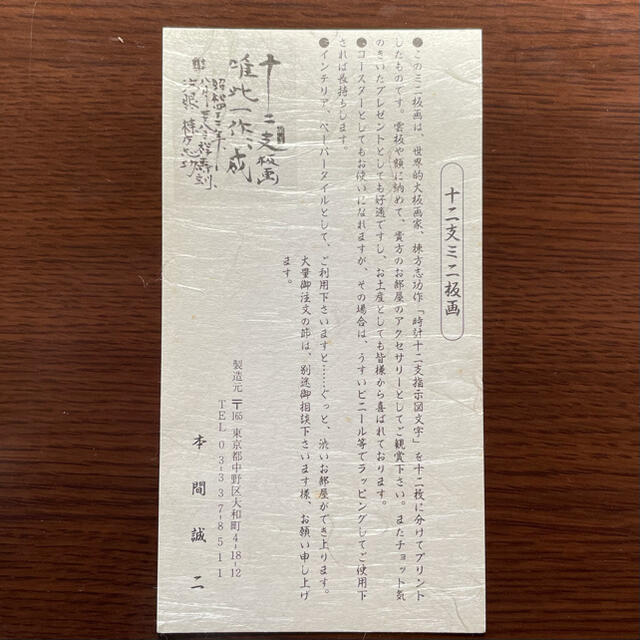 十二支ミニ板画
●このミニ板画は、世界的大板画家、棟方志功作「時計十二支指示図文字」を十二枚に分けてプリント
したものです。雲板や額に納めて、貴方のお部屋のアクセサリーとしてご観賞下さい。またチョット気
のきいたプレゼントとしても好適ですし、お土産としても皆様から喜ばれております。
●コースターとしてもお使いになれますが、その場合は、うすいビニール等でラッピングしてご使用下
されば長持ちします。
●インテリア、ペーパータイルとして、ご利用下さいますと……ぐっと、渋いお部屋ができ上ります。
大量御注文の節は、別途御相談下さいます様、お願い申し上げ
ます。
製造元 〒165 東京都中野区大和町4-18-12
TEL 03-337-8511
本間誠二
十二支板画
唯此一作、成
昭和四十二年
棟方志功